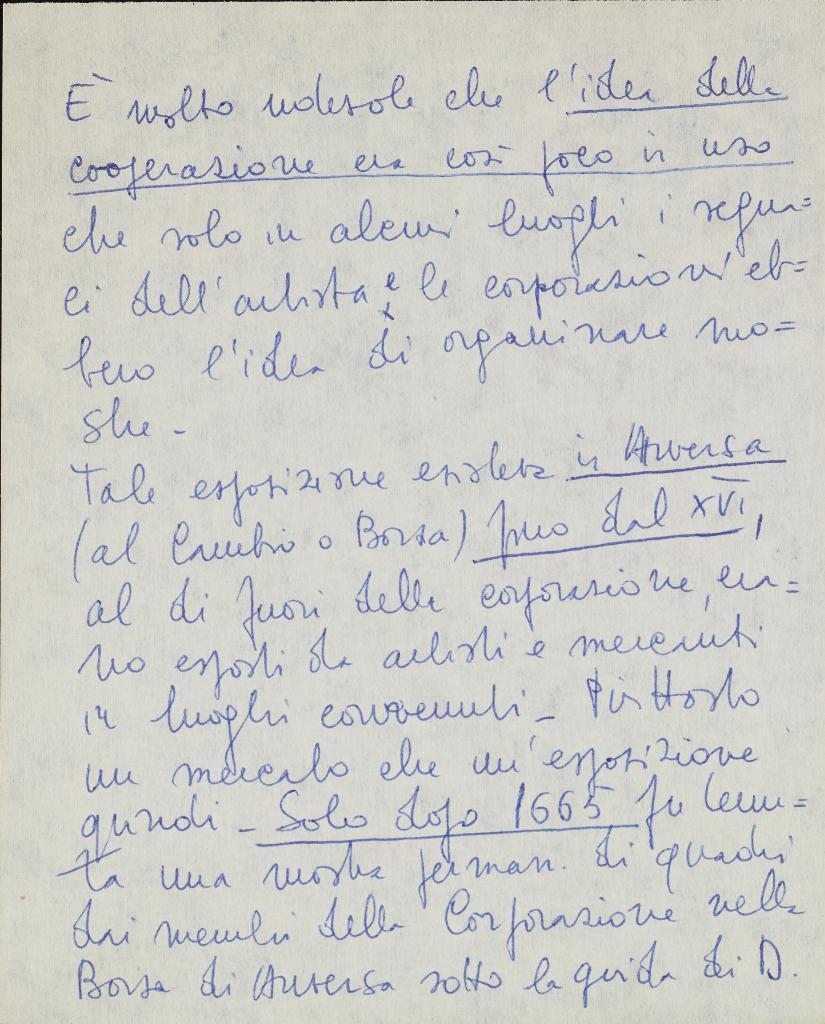 È molto notevole che l'idea della
cooperazione era così poco in uso
che solo in alcuni luoghi i segua=
ci dell'artista e le corporazioni eb=
bero l'idea di organizzare mo=
stre -
Tale esposizione esisteva in Anversa
(al Cambio o Borsa) fino dal XVI,
al di fuori della corporazione, era=
no esposti da artisti e mercanti
in luoghi convenuti - Piuttosto
un mercato che un'esposizione
quindi - Solo dopo 1665 fu tenu=
ta una mostra perman. di quadri
dai membri della Corporazione nella
Borsa di Anversa sotto la guida di D.